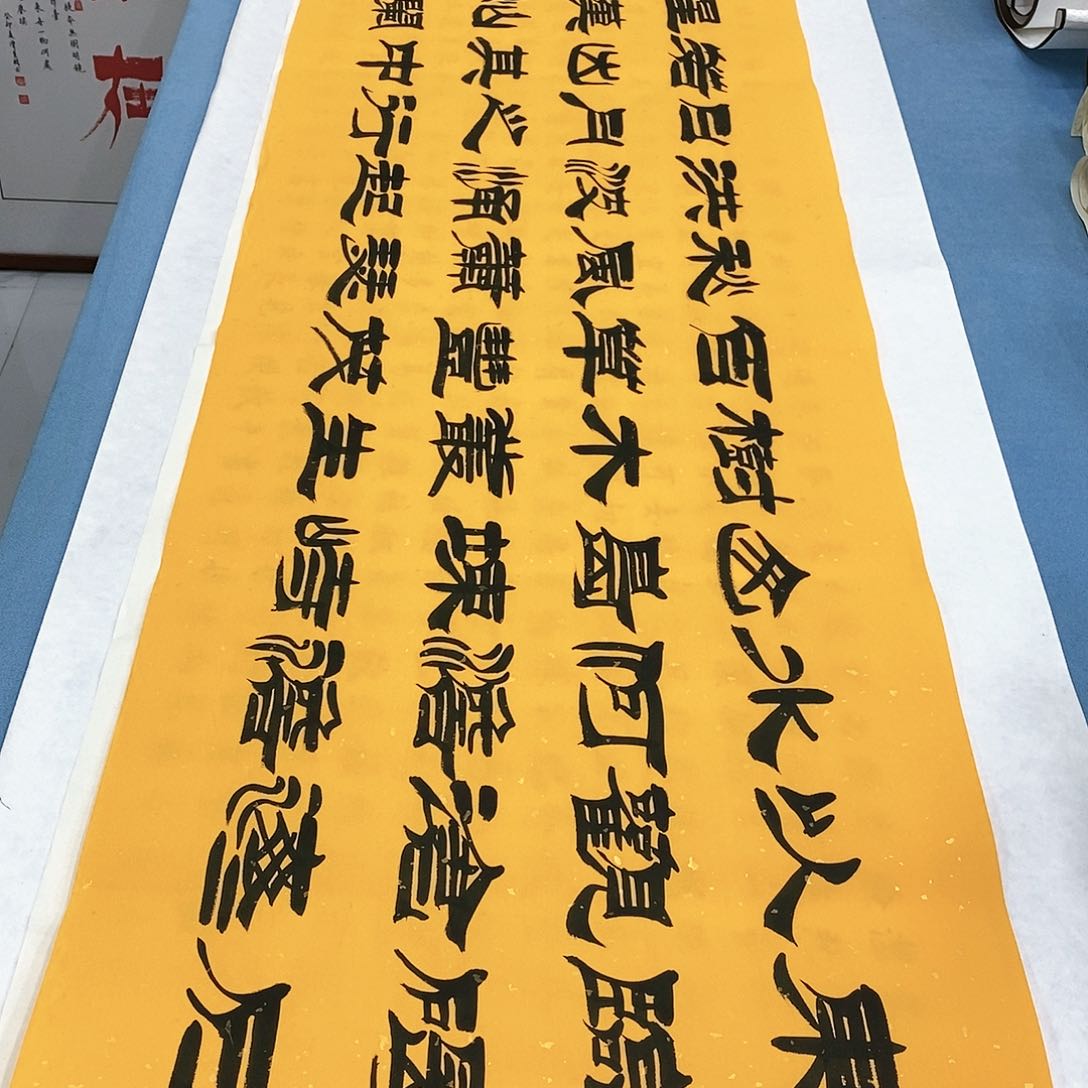 東臨碣石
以觀滄海
水何澹澹
山島竦峙
樹木叢生
百草豐茂
秋風蕭瑟
洪波涌起
日月之行
若出其中
星漢燦爛